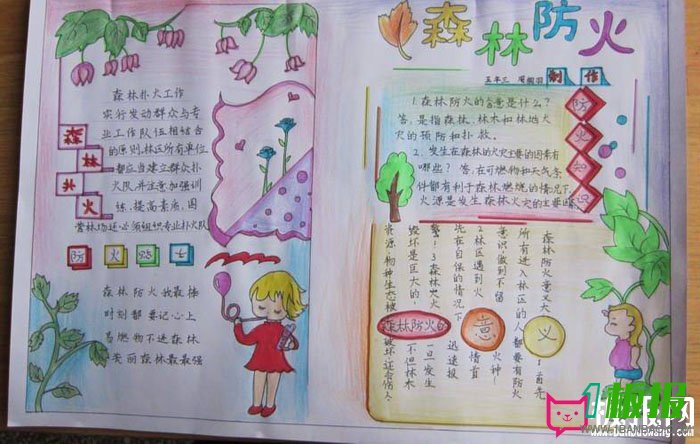 森林防火
五年三
制作
森林扑火工作
实行发动群众与专
业工作队伍相结合
的原则,林区所有单位
都应当建立群众扑
火队,并注意加强训
练,提高素质,国
营林场还必须组织专业扑火队
森林扑火
防火
森林防火我最棒
时刻都要记心上
易燃物不进森林
美丽森林最最强
1.森林防火的含意是什么?
答:是指森林、林木和林地火
灾的预防和扑救。
2.发生在森林的火灾主要的因素有
哪些?答:在可燃物和天气条
件都有利于森林燃烧的情况下,
火源是发生森林火灾的主要因
防火知识
森林防火意义大
首先
所有进入林区的人都要有防火
意识做到不留
火种!
2.林区遇到火
情首
先在自保的情况下
迅速报
警!3.森林火灾
一旦发生
毁坏是巨大的,
不但林木
资源
物种生态被
破坏
森林防火的意义
1板报